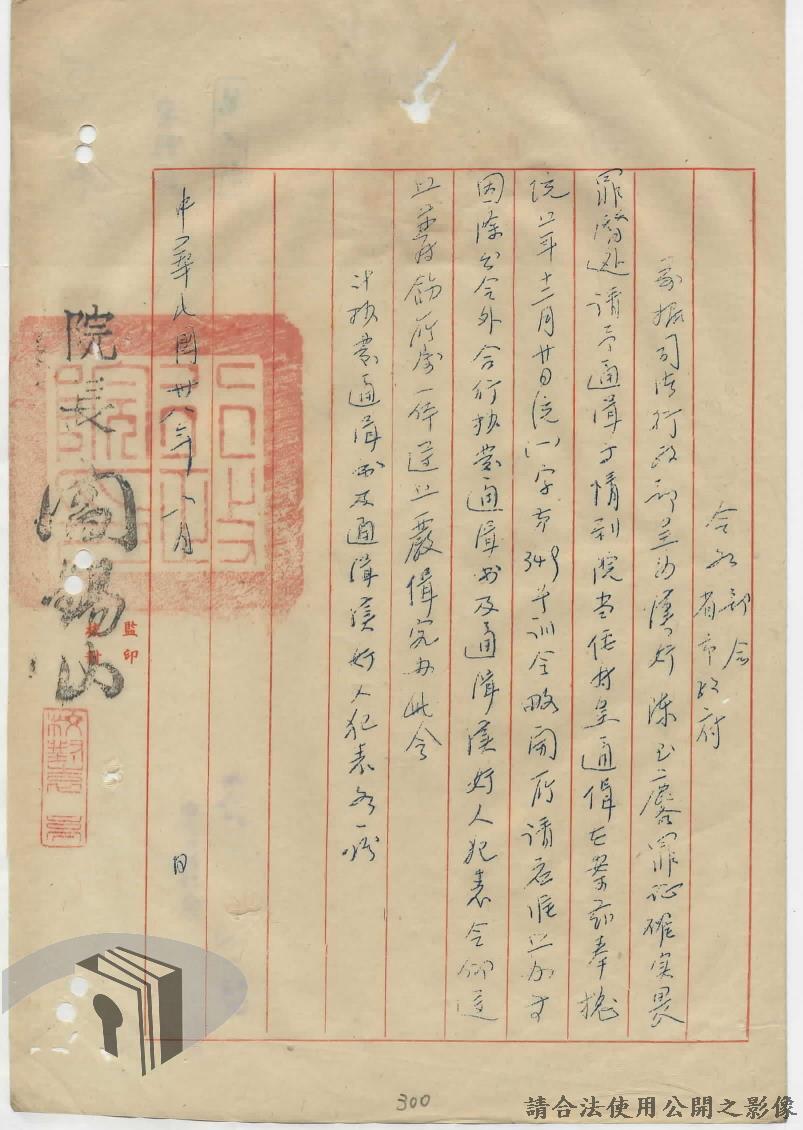 令各部會
省市政府
案据司法行政部呈為漢奸陳玉麐罪證確实畏
罪潛逃請予通緝等情到院当經转呈通緝在案茲奉 總
統卅年十二月廿日統(一)字第349号训令畧開所請应准照办等
因除分令外合行抄發通緝书及通緝漢奸人犯表令仰遵
照并转飭所属一体遵照嚴緝究办此令
計抄發通緝书及通緝漢奸人犯表各一份
中華民國廿八年一月 日
院長 閻錫山
監印
校對
300
請合法使用公開之影像